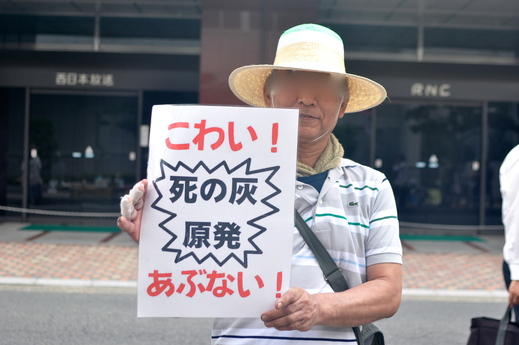 西日本放送
RNC
こわい！
死の灰
原発
あぶない！